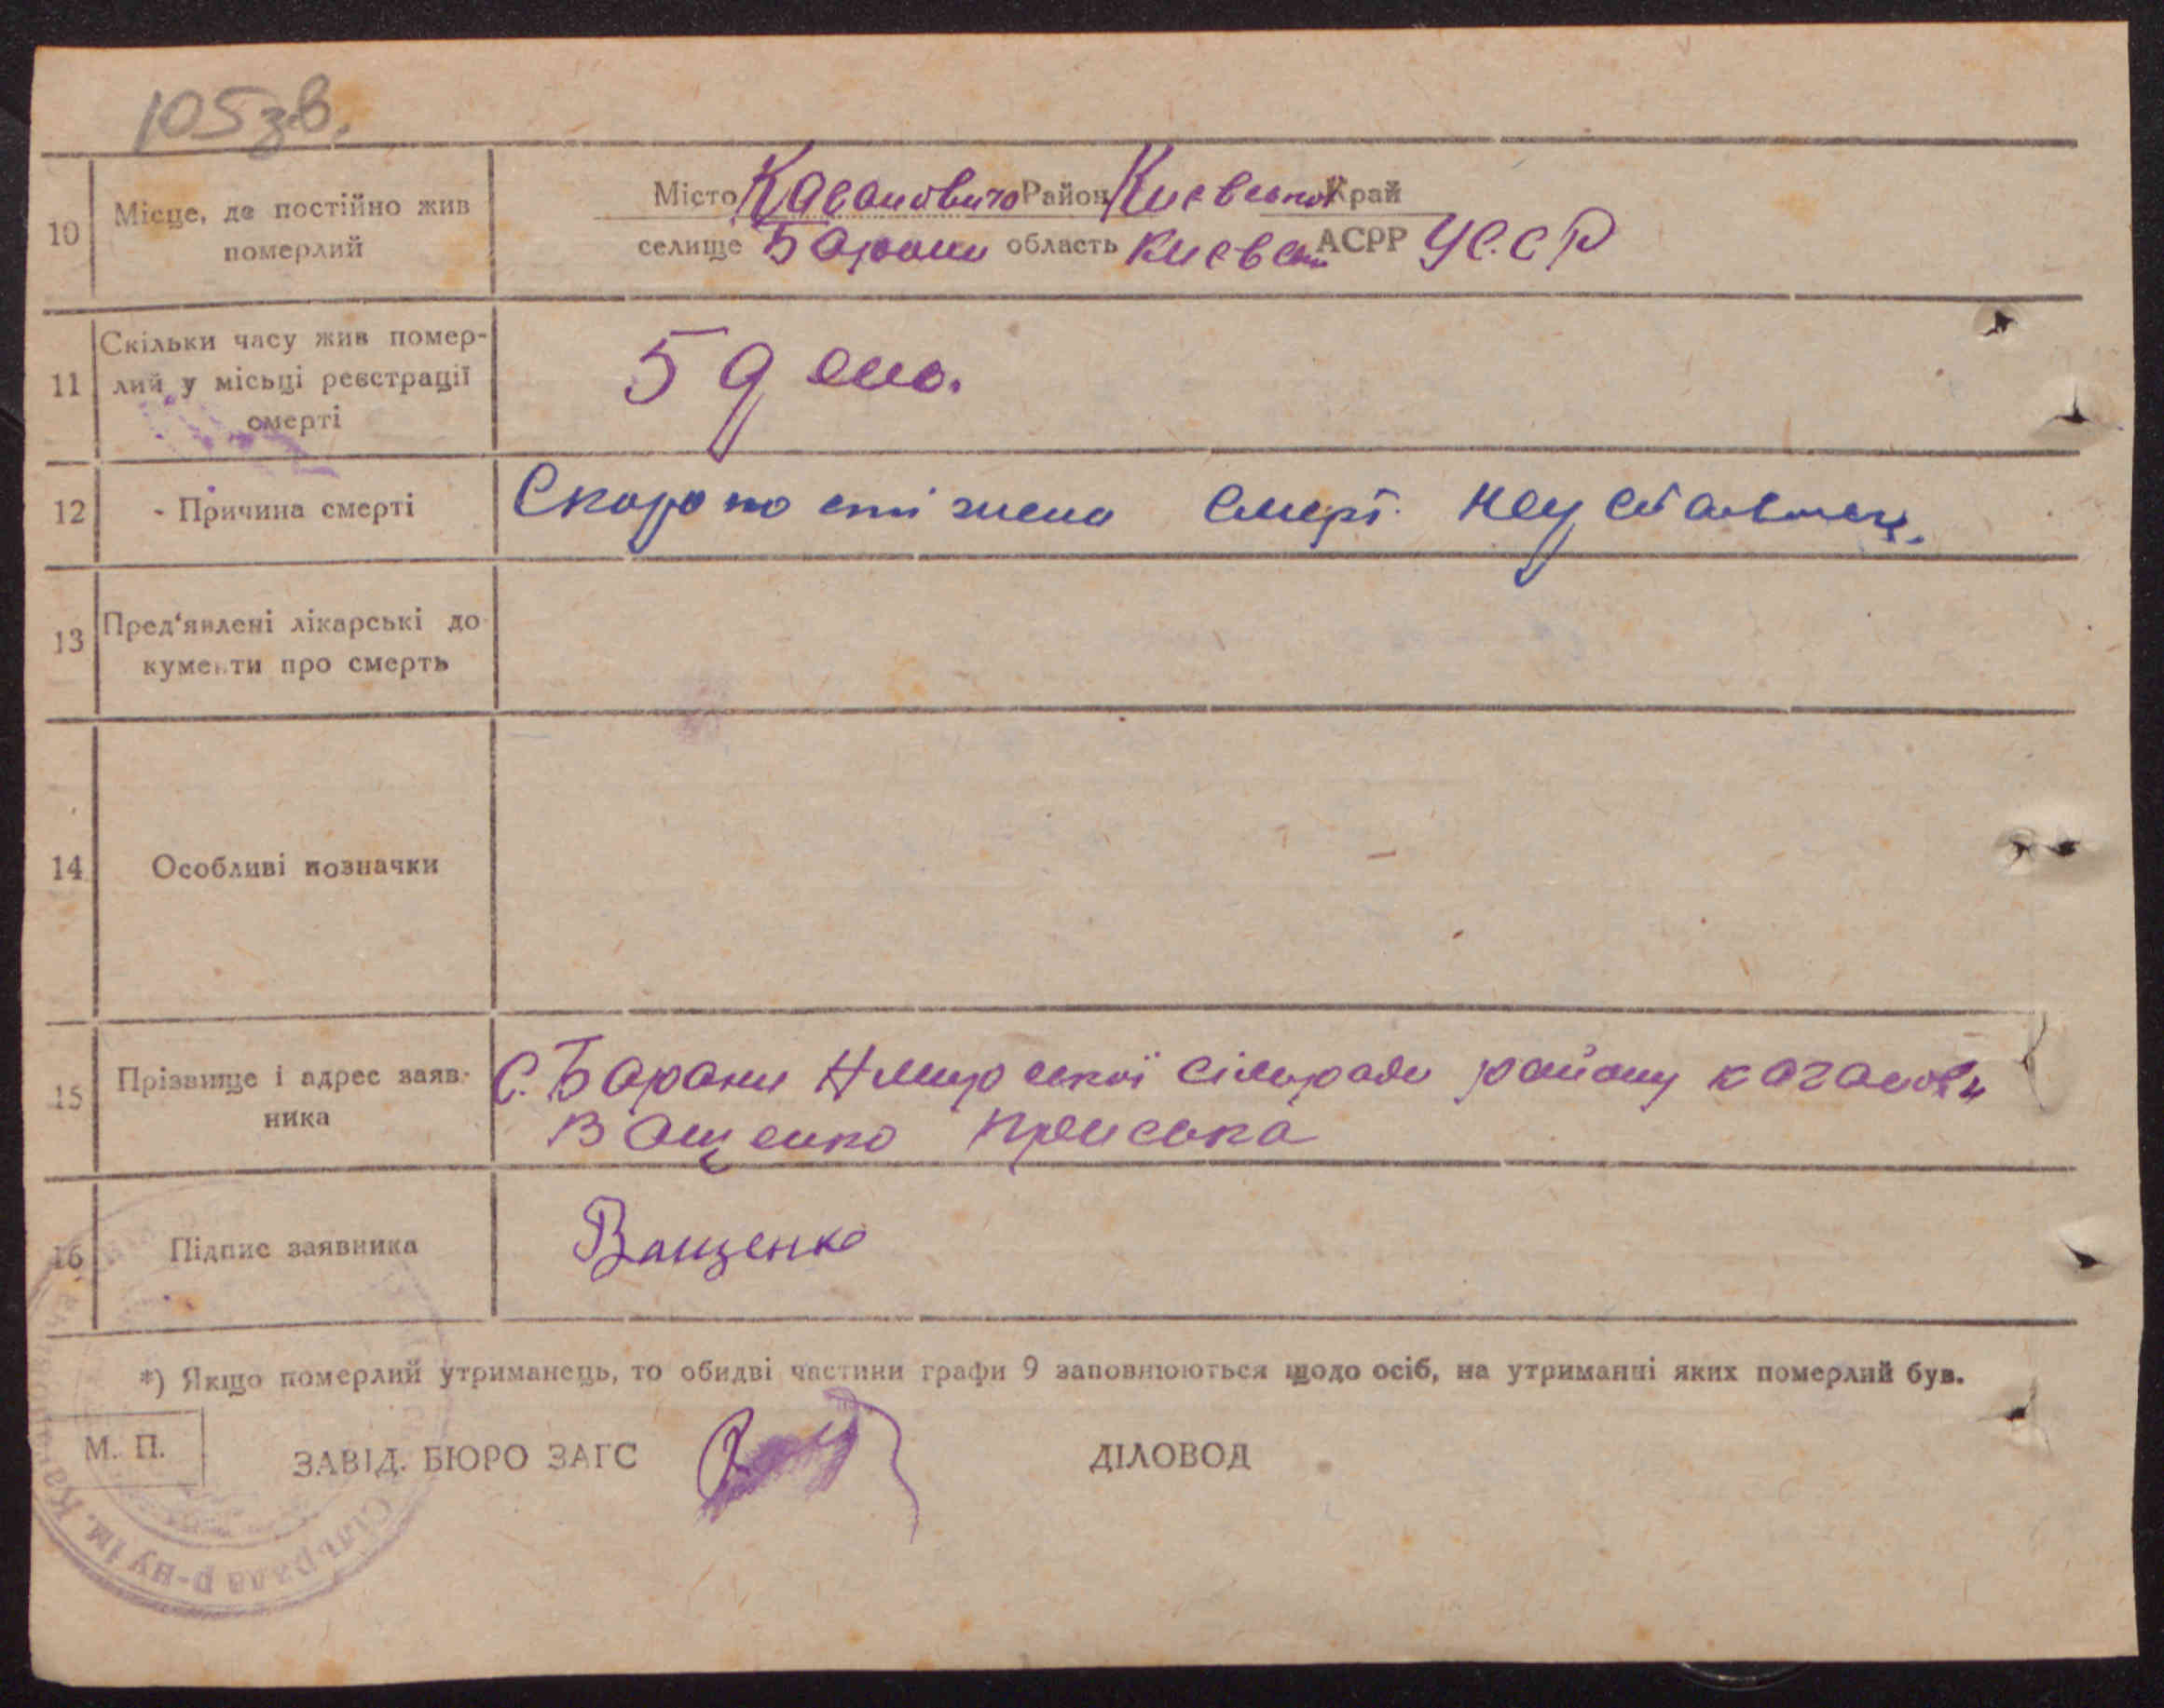 105 зв.
10 Місце, де постійно жив померлий
Місто Кагановича Район Києвської Край
селище Барани область Києвськ АСРР УССР
11 Скільки часу жив помер-
лий у місьці реєстрації
смерті
5 день.
12 Причина смерті
Скоропостіжена смерт.
13 Пред'явлені лікарські до
кументи про смерть
14 Особливі позначки
15 Прізвище і адрес заяв-
ника
С. Барани сільради району Каганови
ВащенкоПриська
16 Підпис заявника
Ващенко
*) Якщо померлий утриманець, то обидві частини графи 9 заповнюються щодо осіб, на утриманні яких померлий був.
М. П.
ЗАВІД. БЮРО ЗАГС
ДІЛОВОД
Сільрада р-ну ім. Ка